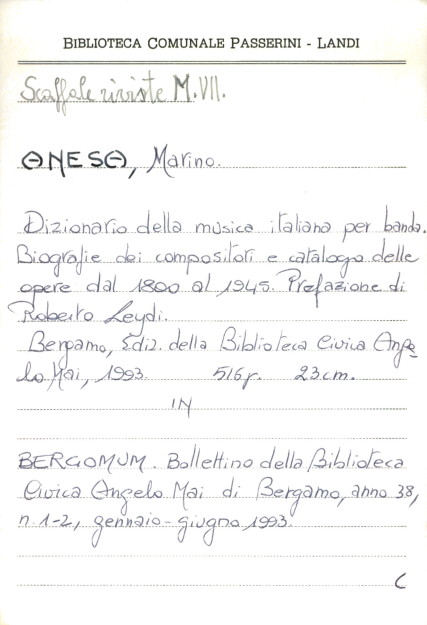 BIBLIOTECA COMUNALE PASSERINI - LANDI
Scaffale riviste M.VII.
ANESA, Marino.
Dizionario della musica italiana per banda.
Biografie dei compositori e catalogo delle
opere dal 1800 al 1945. Prefazione di
Roberto Leydi.
Bergamo, Ediz. della Biblioteca Civica Ange
lo Mai, 1993. 516p. 23cm.
IN
BERGOMUM. Bollettino della Biblioteca
Civica Angelo Mai di Bergamo, anno 38,
n. 1-2, gennaio-giugno 1993.
C